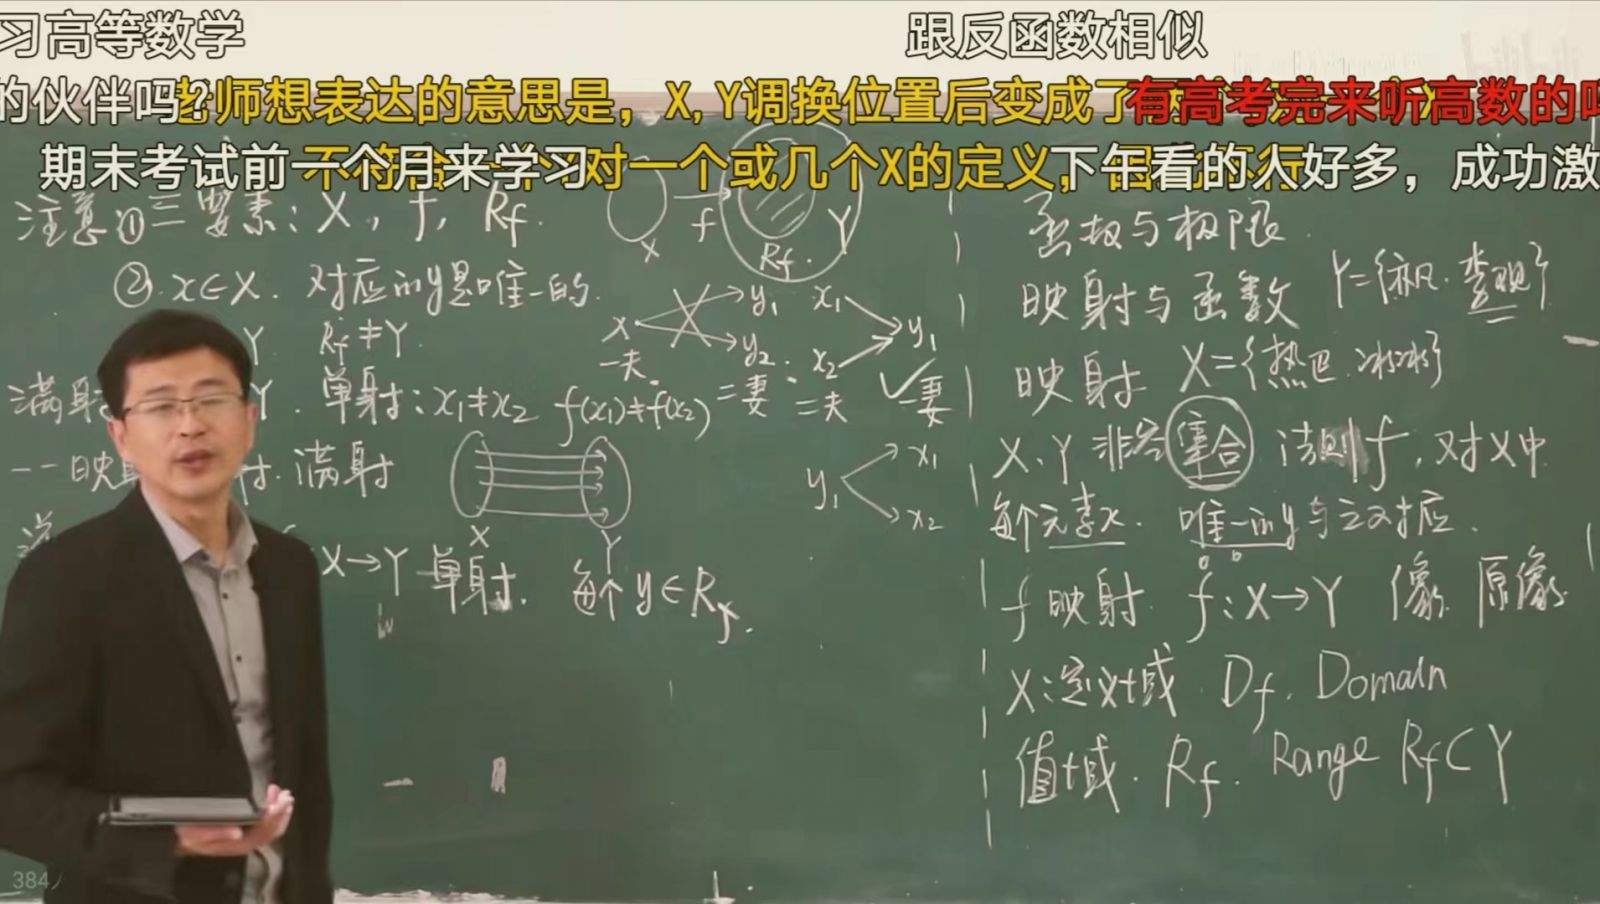 习高等数学
跟反函数相似
的伙伴吗?
老师想表达的意思是，X,Y调换位置后变成了
有高考完来听高数的吗
期末考试前一个月来学习
对一个或几个X的定义，
下午看的人好多，成功激
注意①三要素：X，f，Rf.
X f Rf. Y
②.x∈X. 对应的y是唯一的.
Y Rf≠Y.
x y₁ y₂
一夫. 二妻
x₁ x₂ y₁
二夫 一妻
满射 Y. 单射：x₁≠x₂ f(x₁)≠f(x₂)
一一映射 射.满射
X Y
y₁ x₁ x₂
X→Y 单射. 每个 y∈Rf.
函数与极限.
映射与函数
映射 X={热巴.冰冰}
X、Y 非空集合 法则f，对X中
每个元素x. 唯一的y与之对应.
f 映射. f:X→Y 像. 原像.
X:定义域. Df. Domain
值域. Rf. Range Rf⊂Y
384